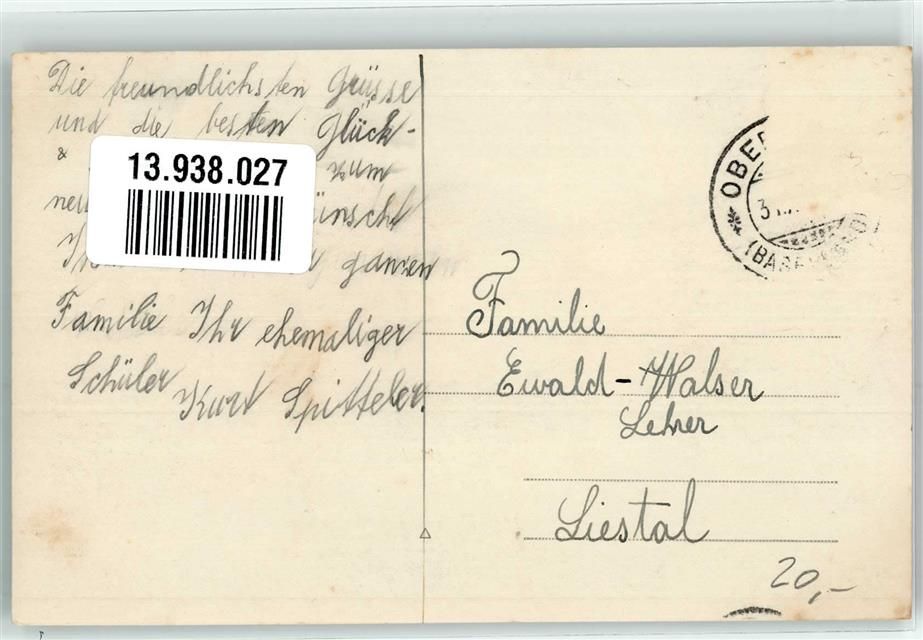 Die freundlichsten Grüsse
und die besten Glück-
& zum
13.938.027
ganzen
Familie Ihr ehemaliger
Schüler
Kurt Spitteler.
OBE
Familie
Ewald-Walser
Lehrer
Liestal
20,-